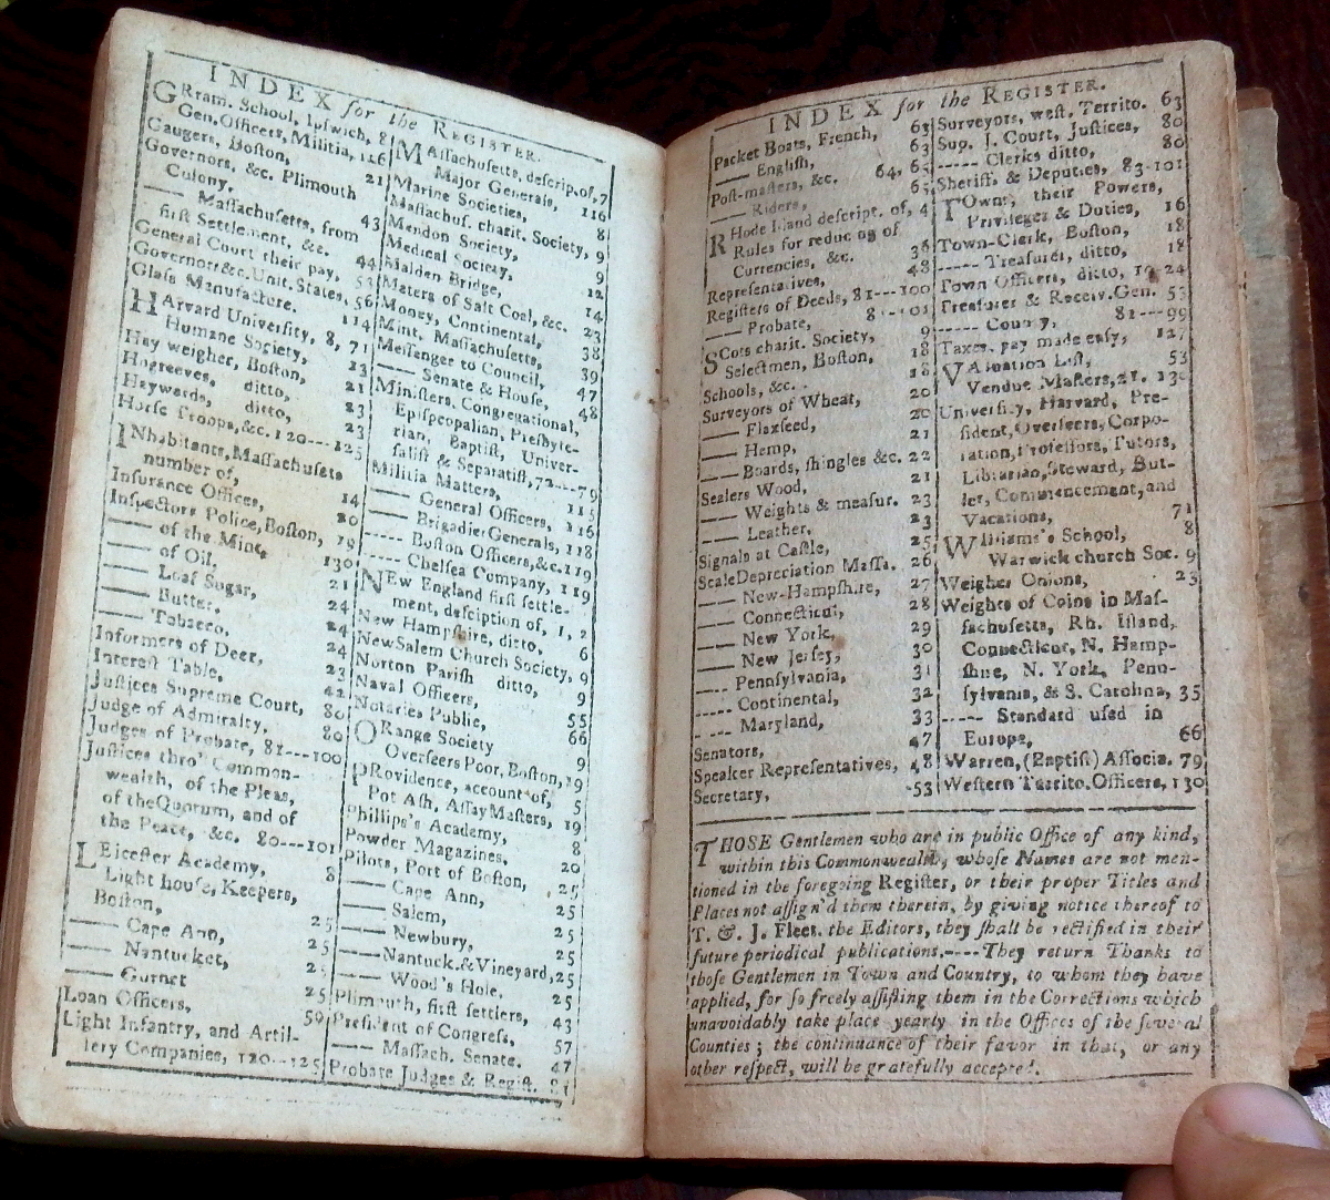 INDEX for the REGISTER.
GRram. School, Ipswich, 8
Gen. Officers, Militia, 116
Gaugers, Boston, 21
Governors, &c. Plimouth
Colony, 43
—— Massachusetts, from
first Settlement, &c. 44
General Court their pay, 53
Governors &c. Unit. States, 56
Glass Manufacture. 114
HArvard University, 8, 71
Humane Society, 13
Hay weigher, Boston, 21
Hogreeves, ditto, 23
Haywards, ditto, 23
Horse Troops, &c. 120---125
INhabitants, Massachusets
number of, 14
Insurance Offices, 20
Inspectors Police, Boston, 19
—— of the Mint, 130
—— of Oil, 21
—— Loaf Sugar, 24
—— Butter, 24
—— Tobacco, 24
Informers of Deer, 23
Interest Table, 42
Justices Supreme Court, 80
Judge of Admiralty, 80
Judges of Probate, 81---100
Justices thro' Common-
wealth, of the Pleas,
of the Quorum, and of
the Peace, &c. 80---101
LEicester Academy, 8
Light house, Keepers,
Boston, 25
—— Cape Ann, 25
—— Nantucket,
—— Gurnet 25
Loan Officers, 59
Light Infantry, and Artil-
lery Companies, 120---125
MAssachusetts, descrip. of, 7
Major Generals, 116
Marine Societies, 8
Massachus. charit. Society, 9
Mendon Society, 9
Medical Society, 9
Malden Bridge, 12
Maters of Salt Coal, &c. 14
Money, Continental, 23
Mint, Massachusetts, 38
Messenger to Council, 39
—— Senate & House, 47
Ministers, Congregational, 48
Episcopalian, Presbyte-
rian, Baptist, Univer-
salist & Separatist, 72---79
Militia Matters, 115
—— General Officers, 116
—— Brigadier Generals, 118
----- Boston Officers, &c. 119
----- Chelsea Company, 119
NEw England first settle-
ment, desciption of, 1, 2
New Hampshire, ditto, 6
New Salem Church Society, 9
Norton Parish ditto, 9
Naval Officers, 55
Notaries Public, 66
ORange Society 9
Overseers Poor, Boston, 19
PRovidence, account of, 5
Pot Ash, Assay Masters, 19
Phillips's Academy, 8
Powder Magazines, 20
Pilots, Port of Boston, 25
—— Cape Ann, 25
—— Salem, 25
—— Newbury, 25
—— Nantuck. & Vineyard, 25
—— Wood's Hole, 25
Plimouth, first settlers, 43
President of Congress, 57
—— Massach. Senate. 47
Probate Judges & Regist. 81
INDEX for the REGISTER.
Packet Boats, French, 63
—— English, 63
Post-masters, &c. 64, 65
—— Riders, 65
RHode Island descript. of, 4
Rules for reducing of
Currencies, &c. 36
Representatives, 48
Registers of Deeds, 81---100
—— Probate, 81---101
SCots charit. Society, 9
Selectmen, Boston, 18
Schools, &c. 18
Surveyors of Wheat, 20
—— Flaxseed, 20
—— Hemp, 21
—— Boards, shingles &c. 22
Sealers Wood, 21
—— Weights & measur. 23
—— Leather, 23
Signals at Castle, 25
Scale Depreciation Massa. 26
—— New-Hampshire, 27
—— Connecticut, 28
—— New York, 29
—— New Jersey, 30
----- Pennsylvania, 31
----- Continental, 32
----- Maryland, 33
Senators, 47
Speaker Representatives, 48
Secretary, 53
Surveyors, west. Territo. 63
Sup. J. Court, Justices, 80
----- Clerks ditto, 80
Sheriffs & Deputies, 83-101
TOwns, their Powers,
Privileges & Duties, 16
Town-Clerk, Boston, 18
----- Treasurer, ditto, 18
Town Officers, ditto, 19-24
Treasurer & Receiv. Gen. 53
----- County, 81---99
Taxes, pay made easy, 127
VAluation List, 53
Vendue Masters, 21. 130
University, Harvard, Pre-
sident, Overseers, Corpo-
ration, Professors, Tutors,
Librarian, Steward, But-
ler, Commencement, and
Vacations, 71
WIlliams's School, 8
Warwick church Soc. 9
Weigher Onions, 23
Weights of Coins in Mas-
sachusetts, Rh. Island,
Connecticut, N. Hamp-
shire, N. York, Penn-
sylvania, & S. Carolina, 35
----- Standard used in
Europe, 66
Warren, (Baptist) Associa. 79
Western Territo. Officers, 130
THOSE Gentlemen who are in public Office of any kind,
within this Commonwealth, whose Names are not men-
tioned in the foregoing Register, or their proper Titles and
Places not assign'd them therein, by giving notice thereof to
T. & J. Fleet. the Editors, they shall be rectified in their
future periodical publications.----They return Thanks to
those Gentlemen in Town and Country, to whom they have
applied, for so freely assisting them in the Corrections which
unavoidably take place yearly in the Offices of the several
Counties; the continuance of their favor in that, or any
other respect, will be gratefully accepted.